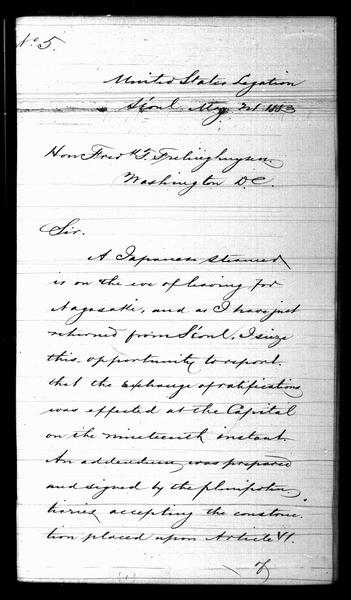 No 5.
United States Legation
Séoul, May 1883
Hon Fred k T. Frelinghuysen
Washington D.C.
Sir.
A Japanese steamer
is on the eve of leaving for
Nagasaki, and as I have just
returned from Séoul, I seize
this opportunity to report
that the exchange of ratifications
was effected at the Capital
on the nineteenth instant.
An addendum was prepared
and signed by the plenipoten
tiaries accepting the construc
tion placed upon Article VI.
of